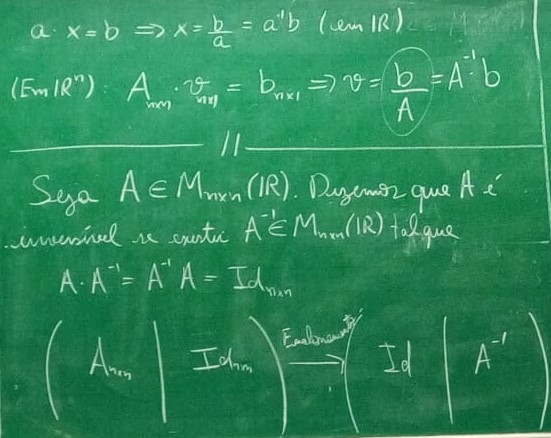 a · x = b ⇒ x = b/a = a⁻¹b (em IR)
(Em IRⁿ) Aₙₓₙ · vₙₓ₁ = bₙₓ₁ ⇒ v = b/A = A⁻¹ · b
//
Seja A ∈ Mₙₓₙ(IR). Dizemos que A é
inversível se existir A⁻¹ ∈ Mₙₓₙ(IR) tal que
A · A⁻¹ = A⁻¹ A = Idₙₓₙ
( Aₙₓₙ | Idₙₓₙ ) Escalonamento → ( Id | A⁻¹ )